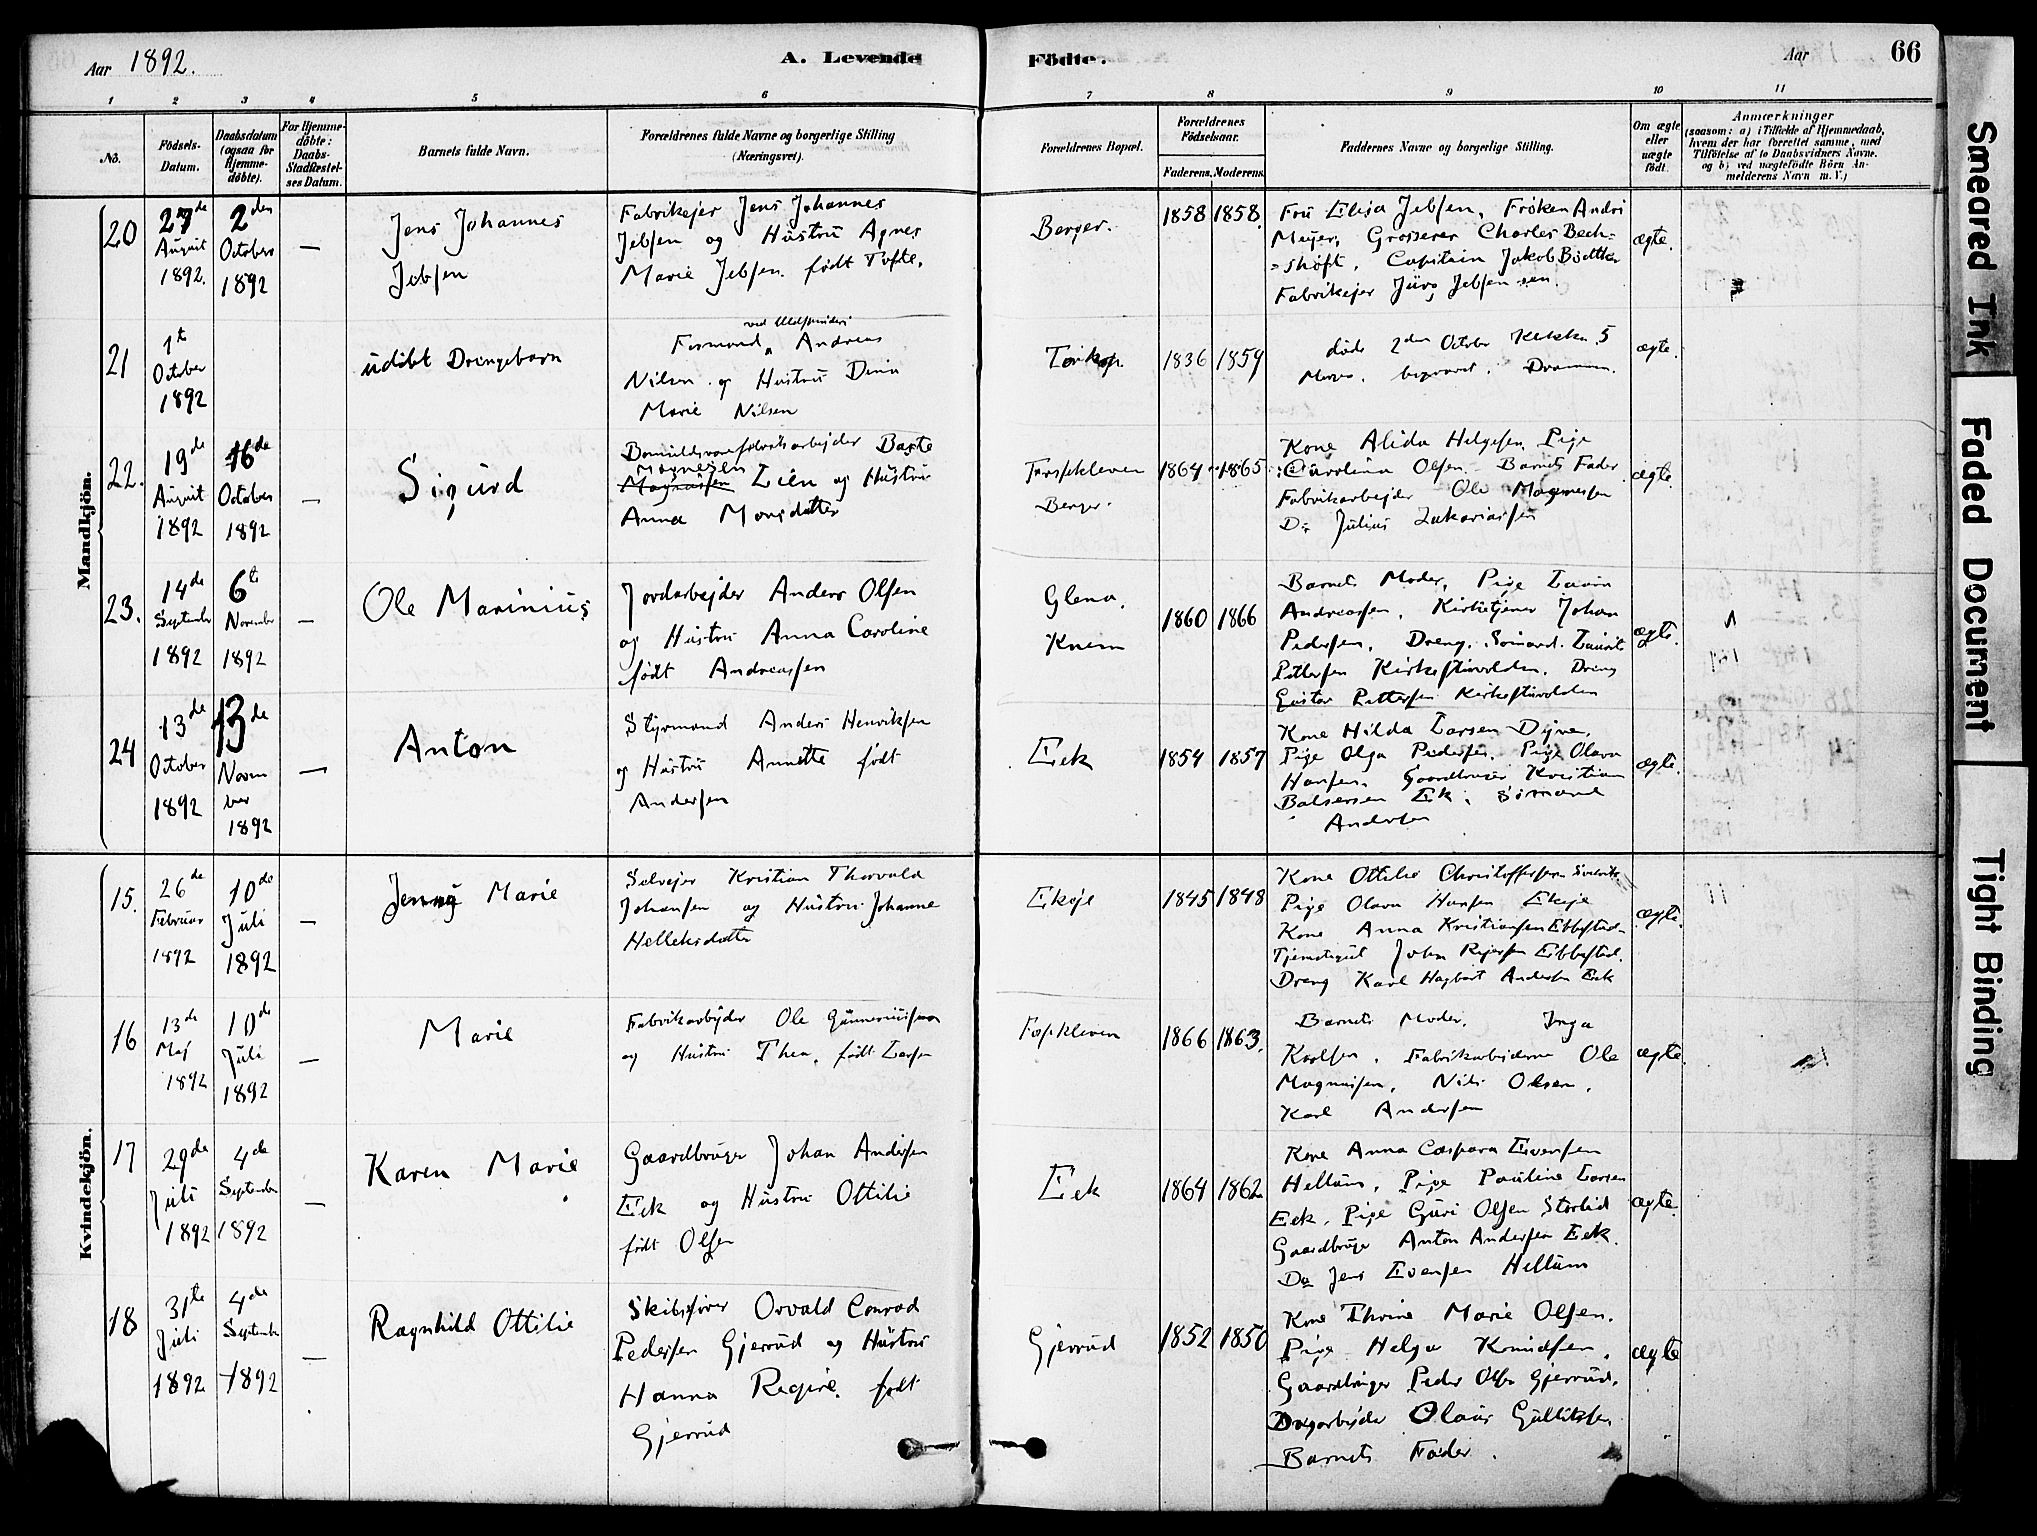 Aar 1892.
A. Levende
Födte.
Aar
66
1 2 3 4 5 6 7 8 9 10 11
No.
Födsels-
Datum.
Daabsdatum
(ogsaa for
Hjemme-
döbte).
For Hjemme-
döbte:
Daabs-
Stadfæstel-
ses Datum.
Barnets fulde Navn.
Forældrenes fulde Navne og borgerlige Stilling
(Næringsvei).
Forældrenes Bopæl.
Forældrenes
Födselsaar.
Faderens. Moderens.
Faddernes Navne og borgerlige Stilling.
Om ægte
eller
uægte
födt.
Anmærkninger
(saasom: a) i Tilfælde af Hjemmedaab,
hvem der har forrettet samme, med
Tilföielse af to Daabsvidners Navne.
og b) ved uægtefödte Börn An-
melderens Navn m. V.)
Mandkjön.
20
27de
August
1892.
2den
October
1892
—
Jens Johannes
Jebsen
Fabrikejer Jens Johannes
Jebsen og Hustru Agnes
Marie Jebsen. født Tofte.
Berger.
1858 1858.
Fru Elisa Jebsen, Frøken Andri
Meyer, Grosserer Charles Bech-
=shøft, Capitain Jakob Bødtker
Fabrikejer Jürg Jebsen sen.
ægte.
21
1t
October
1892
udøbt Drengebarn
Formand ved Uldspinderi Andreas
Nilsen og Hustru Dina
Marie Nilsen
Torkop.
1836 1859
døde 2den October Klokken 5
ægte.
22.
19de
August
1892
16de
October
1892
—
Sigurd
Magnesen
Magnussen Lien og Hustru
Anna Monsdatter
Fosskleven
Berger.
1864 1865
Kone Alida Helgesen, Pige
Carolina Olsen. Barnets Fader
Fabrikarbejder Ole Magnessen
Do Julius Zakariassen
ægte.
23.
14de
September
1892
6t
November
1892
—
Ole Marinius
Jordarbejder Anders Olsen
og Hustru Anna Caroline
født Andreassen
Glena,
Knem
1860 1866
Barnets Moder, Pige Laura
Andreassen, Kirketjener Johan
Pedersen, Dreng. Sömand. Laurits
Pettersen Kirkestuvolden, Dreng
Gustav Pettersen Kirkestuvolden
ægte.
24
13de
October
1892
13de
Novem
ber
1892
—
Anton
Styrmand Anders Henriksen
og Hustru Annette født
Andersen
Eek
1854 1857
Kone Hilda Larsen Dyne.
Pige Olga Pedersen. Pige Olava
Hansen. Gaardbruger Kristian
Balsersen Ek. Sömand
Andersen
ægte.
Kvindekjön.
15.
26de
Februar
1892
10de
Juli
1892
—
Jenny Marie
Selvejer Kristian Thorvald
Johansen og Hustru Johanne
Helleksdatter
Ekeje
1845 1848
Kone Ottilie Christoffersen
Pige Olava Hansen Ekeje
Kone Anna Kristiansen Ebbestad
Tjenstegut Johan Rejersen Ebbestad.
Dreng Karl Hagbart Andersen Eek
ægte.
16
13de
Maj
1892
10de
Juli
1892
—
Marie
Fabrikarbejder Ole Gunneriussen
og Hustru Thea, født Larsen
Foskleven
1866 1863.
Barnets Moder. Inga
Karlsen. Fabrikarbejderne Ole
Magnusen, Nils Olsen,
Karl Andersen
ægte.
17
29de
Juli
1892
4de
September
1892
—
Karen Marie
Gaardbruger Johan Andersen
Eek og Hustru Ottilie
født Olsen
Eek
1864 1862
Kone Anna Caspara Evensen
Hellum, Pige Pauline Larsen
Eek, Pige Guri Olsen Storlid
Gaardbruger Anton Andersen Eek.
Do Jens Evensen Hellum
ægte.
18
31te
Juli
1892
4de
September
1892
—
Ragnhild Ottilie
Skibsfører Osvald Conrad
Pedersen Gjerrud og Hustru
Hanna Regine. født
Gjerrud
Gjerrud
1852 1850
Kone Thrine Marie Olsen.
Pige Helga Knudsen.
Gaardbruger Peder Olsen Gjerrud.
Dagarbejder Olaus Gulliksen
Barnets Fader.
ægte
Smeared Ink
Faded Document
Tight Binding